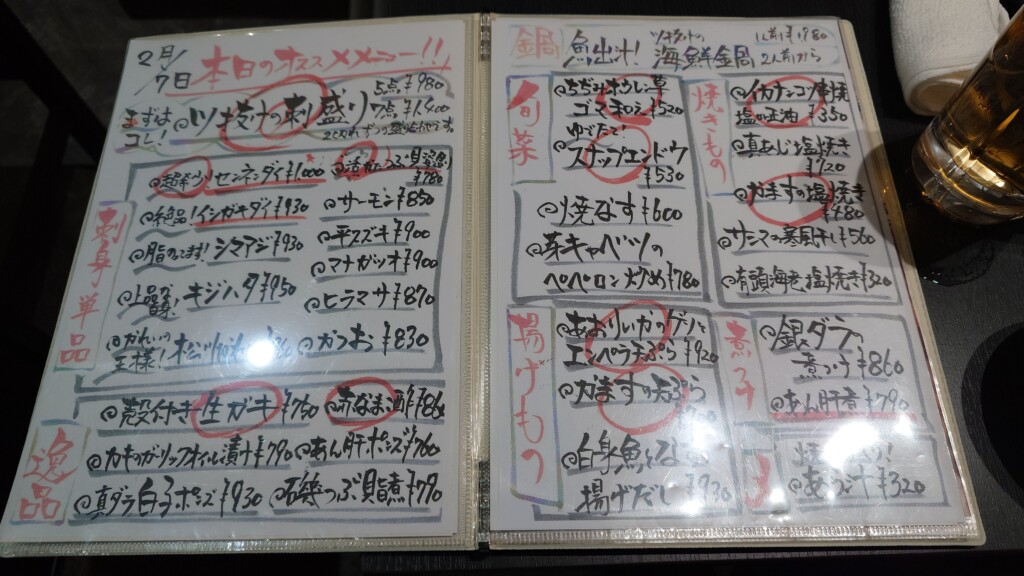 2月/7日
本日のオススメメニュー!!
まずはコレ!
@ツキ技けの刺し盛り
5点¥980
7点¥1400
刺身単品
@超オシ!センネンダイ¥1000
¥780
@絶品!インガキダイ¥930
@サーモン¥850
@脂のってます!シマアジ¥930
@平スズキ¥900
@マナガツオ¥900
@上品な キジハタ¥950
@ヒラマサ¥870
@かれいの王様!
@かつお¥830
逸品
@殻付き生ガキ¥750
@赤なまこ酢¥860
@カキのガーリックオイル漬け¥790
@あん肝ポン酢¥760
@真ダラ白子ポン酢¥930
@石磯つぶ貝煮¥790
鍋
魚出汁!
海鮮鍋
1人前¥1780
2人前から
旬菜
@ちぢみほうれん草
ゴマまるっ¥520
ゆでたて!
@スナップエンドウ
¥530
@焼なす¥600
@芽キャベツの
ペペロン炒め¥780
焼きもの
@イカナンコツ串焼
塩or正油¥350
@真あじ塩焼き
¥720
@かますの塩焼き
¥680
@サンマの寒風干し¥560
@有頭海老塩焼き¥320
揚げもの
@あおりいかのゲソと
エンペラ天ぷら¥920
@かますの天ぷら
@白身魚となすの
揚げだし¥930
煮つけ
@銀ダラの
煮つけ¥860
@あん肝煮¥790
〆
@あら汁¥320